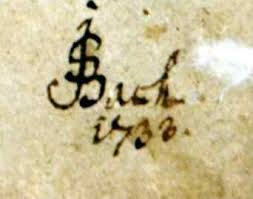 JSBach.
1733.